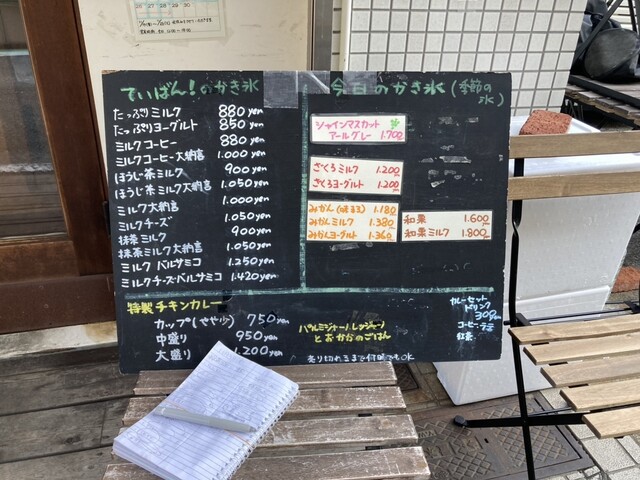 26 27 28 29 30
ていばん!のかき氷
たっぷりミルク 880yen
たっぷりヨーグルト 850yen
ミルクコーヒー 880yen
ミルクコーヒー大納言 1.000yen
ほうじ茶ミルク 900yen
ほうじ茶ミルク大納言 1.050yen
ミルク大納言 1.000yen
ミルクチーズ 1.050yen
抹茶ミルク 900yen
抹茶ミルク大納言 1.050yen
ミルクバルサミコ 1.250yen
ミルクチーズバルサミコ 1.420yen
今日のかき氷(季節の氷)
シャインマスカット
アールグレー 1.700
ざくろミルク 1.200
ざくろヨーグルト 1.200
みかん 1.180
みかんミルク 1.380
みかんヨーグルト 1.360
和栗 1.600
和栗ミルク 1.800
特製チキンカレー
カップ(やや少) 750yen
中盛り 950yen
大盛り 1.200yen
パルミジャーノレッジャーノ
とおかかのごはん
売り切れるまで何時でもOK
カレーセット
ドリンク
300yen
コーヒー
紅茶